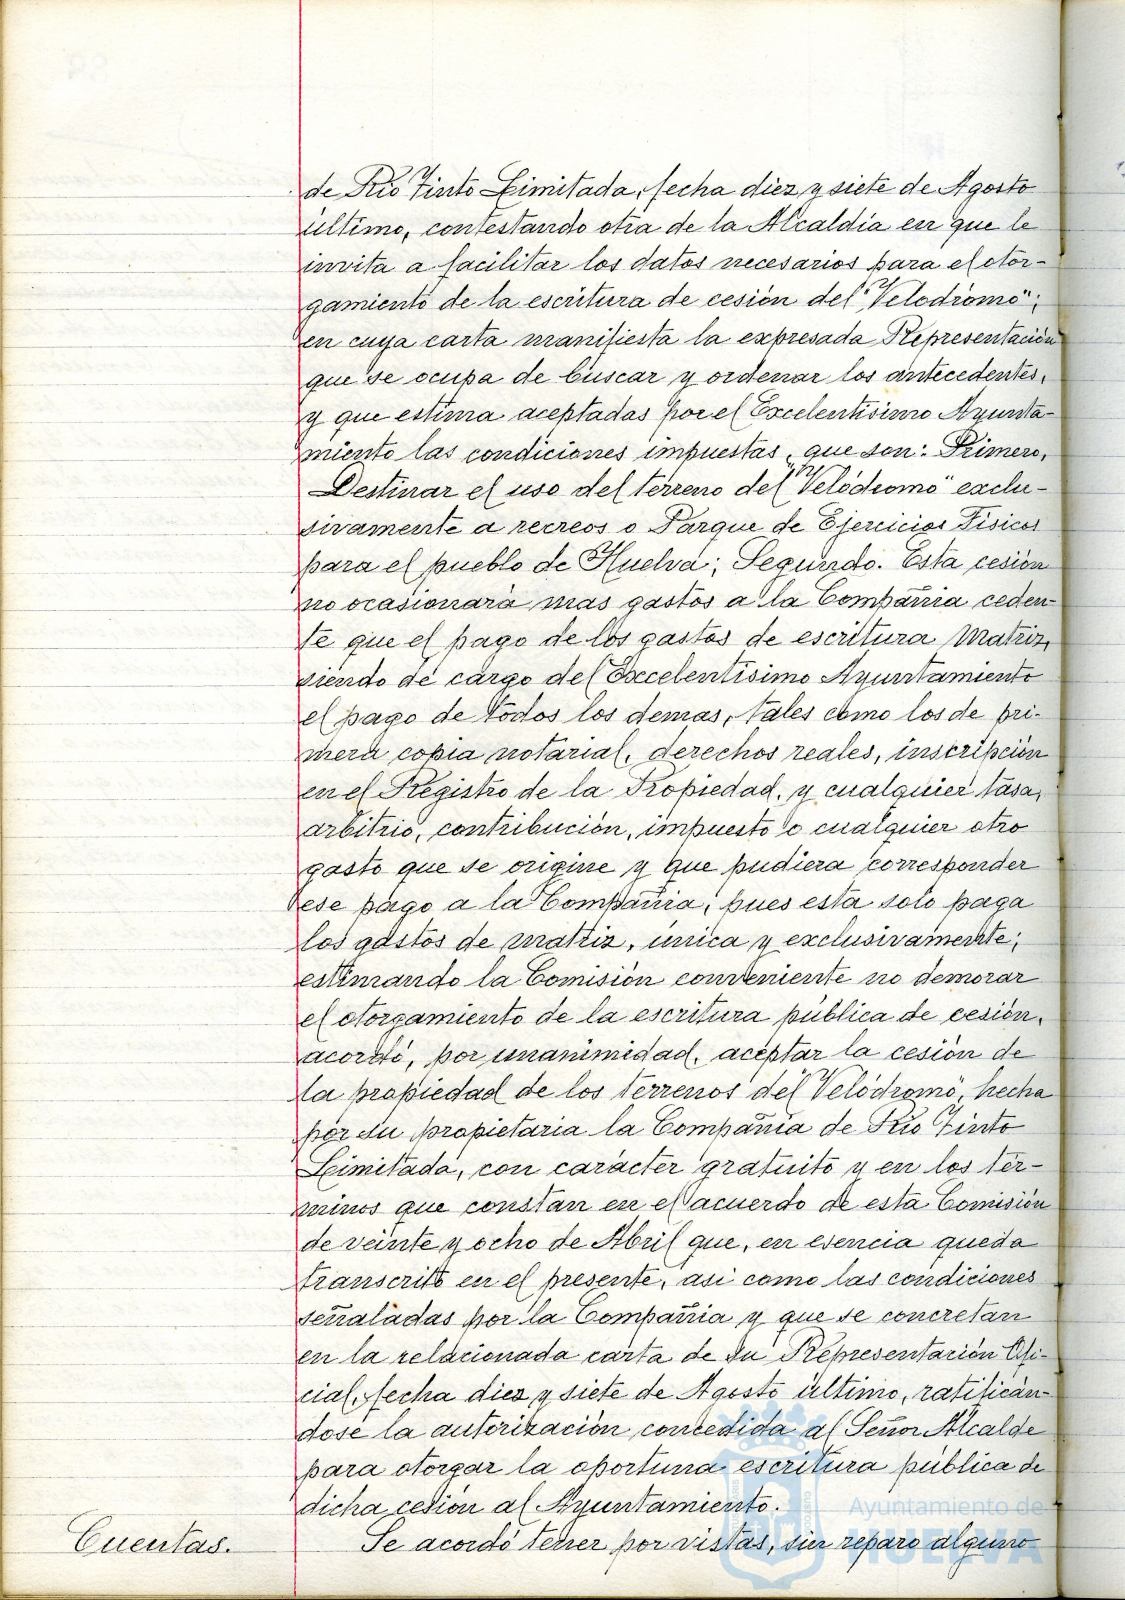 de Río Tinto Limitada, fecha diez y siete de Agosto
último, contestando otra de la Alcaldía en que le
invita a facilitar los datos necesarios para el otor-
gamiento de la escritura de cesión del "Velodromo";
en cuya carta manifiesta la expresada Representación
que se ocupa de buscar y ordenar los antecedentes,
y que estima aceptadas por el Excelentísimo Ayunta-
miento las condiciones impuestas, que son: Primero,
Destinar el uso del terreno del "Velódromo" exclu-
sivamente a recreos o Parque de Ejercicios Físicos
para el pueblo de Huelva; Segundo. Esta cesión
no ocasionará mas gastos a la Compañia ceden-
te que el pago de los gastos de escritura Matriz,
siendo de cargo del Excelentísimo Ayuntamiento
el pago de todos los demas, tales como los de pri-
mera copia notarial, derechos reales, inscripción
en el Registro de la Propiedad, y cualquier tasa,
arbitrio, contribución, impuesto o cualquier otro
gasto que se origine y que pudiera corresponder
ese pago a la Compañia, pues esta solo paga
los gastos de matriz, única y exclusivamente;
estimando la Comisión conveniente no demorar
el otorgamiento de la escritura pública de cesión,
acordó, por unanimidad, aceptar la cesión de
la propiedad de los terrenos del "Velódromo", hecha
por su propietaria la Compañia de Río Tinto
Limitada, con carácter gratuito y en los tér-
minos que constan en el acuerdo de esta Comisión
de veinte y ocho de Abril que, en esencia queda
transcrito en el presente, asi como las condiciones
señaladas por la Compañia y que se concretan
en la relacionada carta de su Representación Ofi-
cial, fecha diez y siete de Agosto último, ratificán-
dose la autorización concedida al Señor Alcalde
para otorgar la oportuna escritura pública de
dicha cesión al Ayuntamiento.
Cuentas. Se acordó tener por vistas, sin reparo alguno
Ayuntamiento de
HUELVA